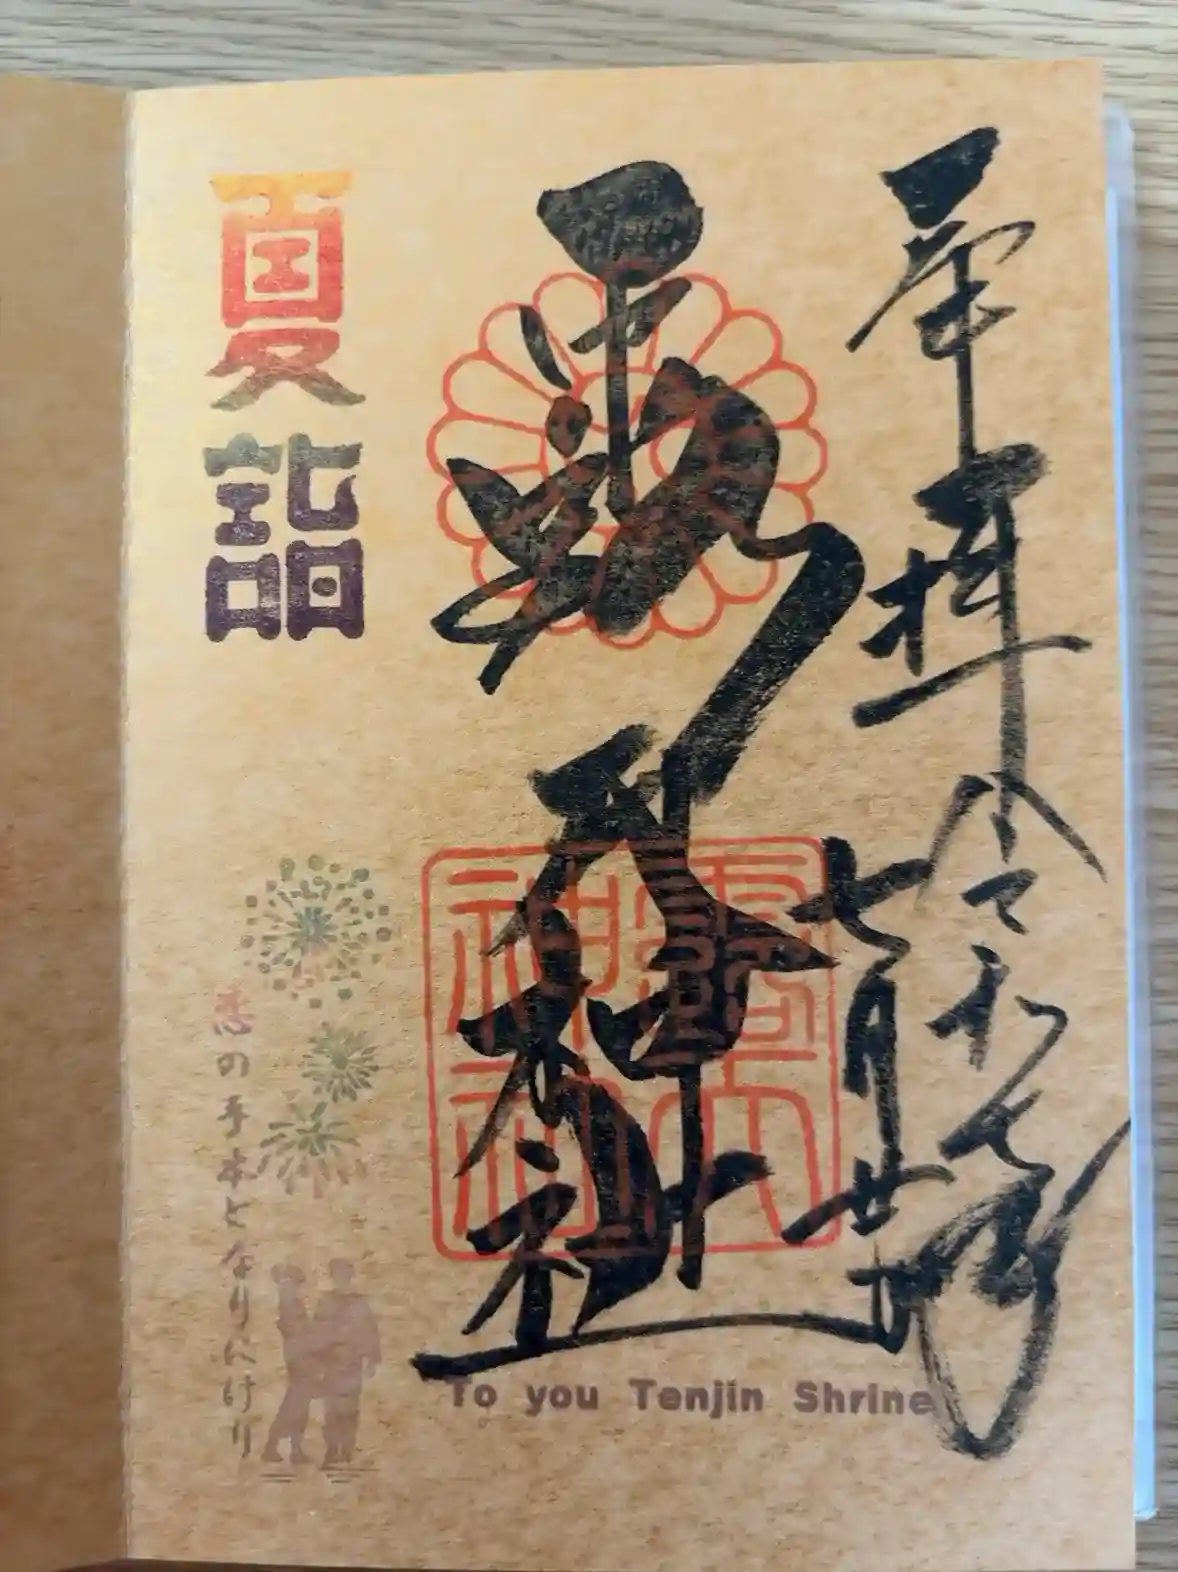 奉拝
令和七年
七月廿日
露天神社
露天
神社
夏詣
恋の手本となりにけり
To you Tenjin Shrine